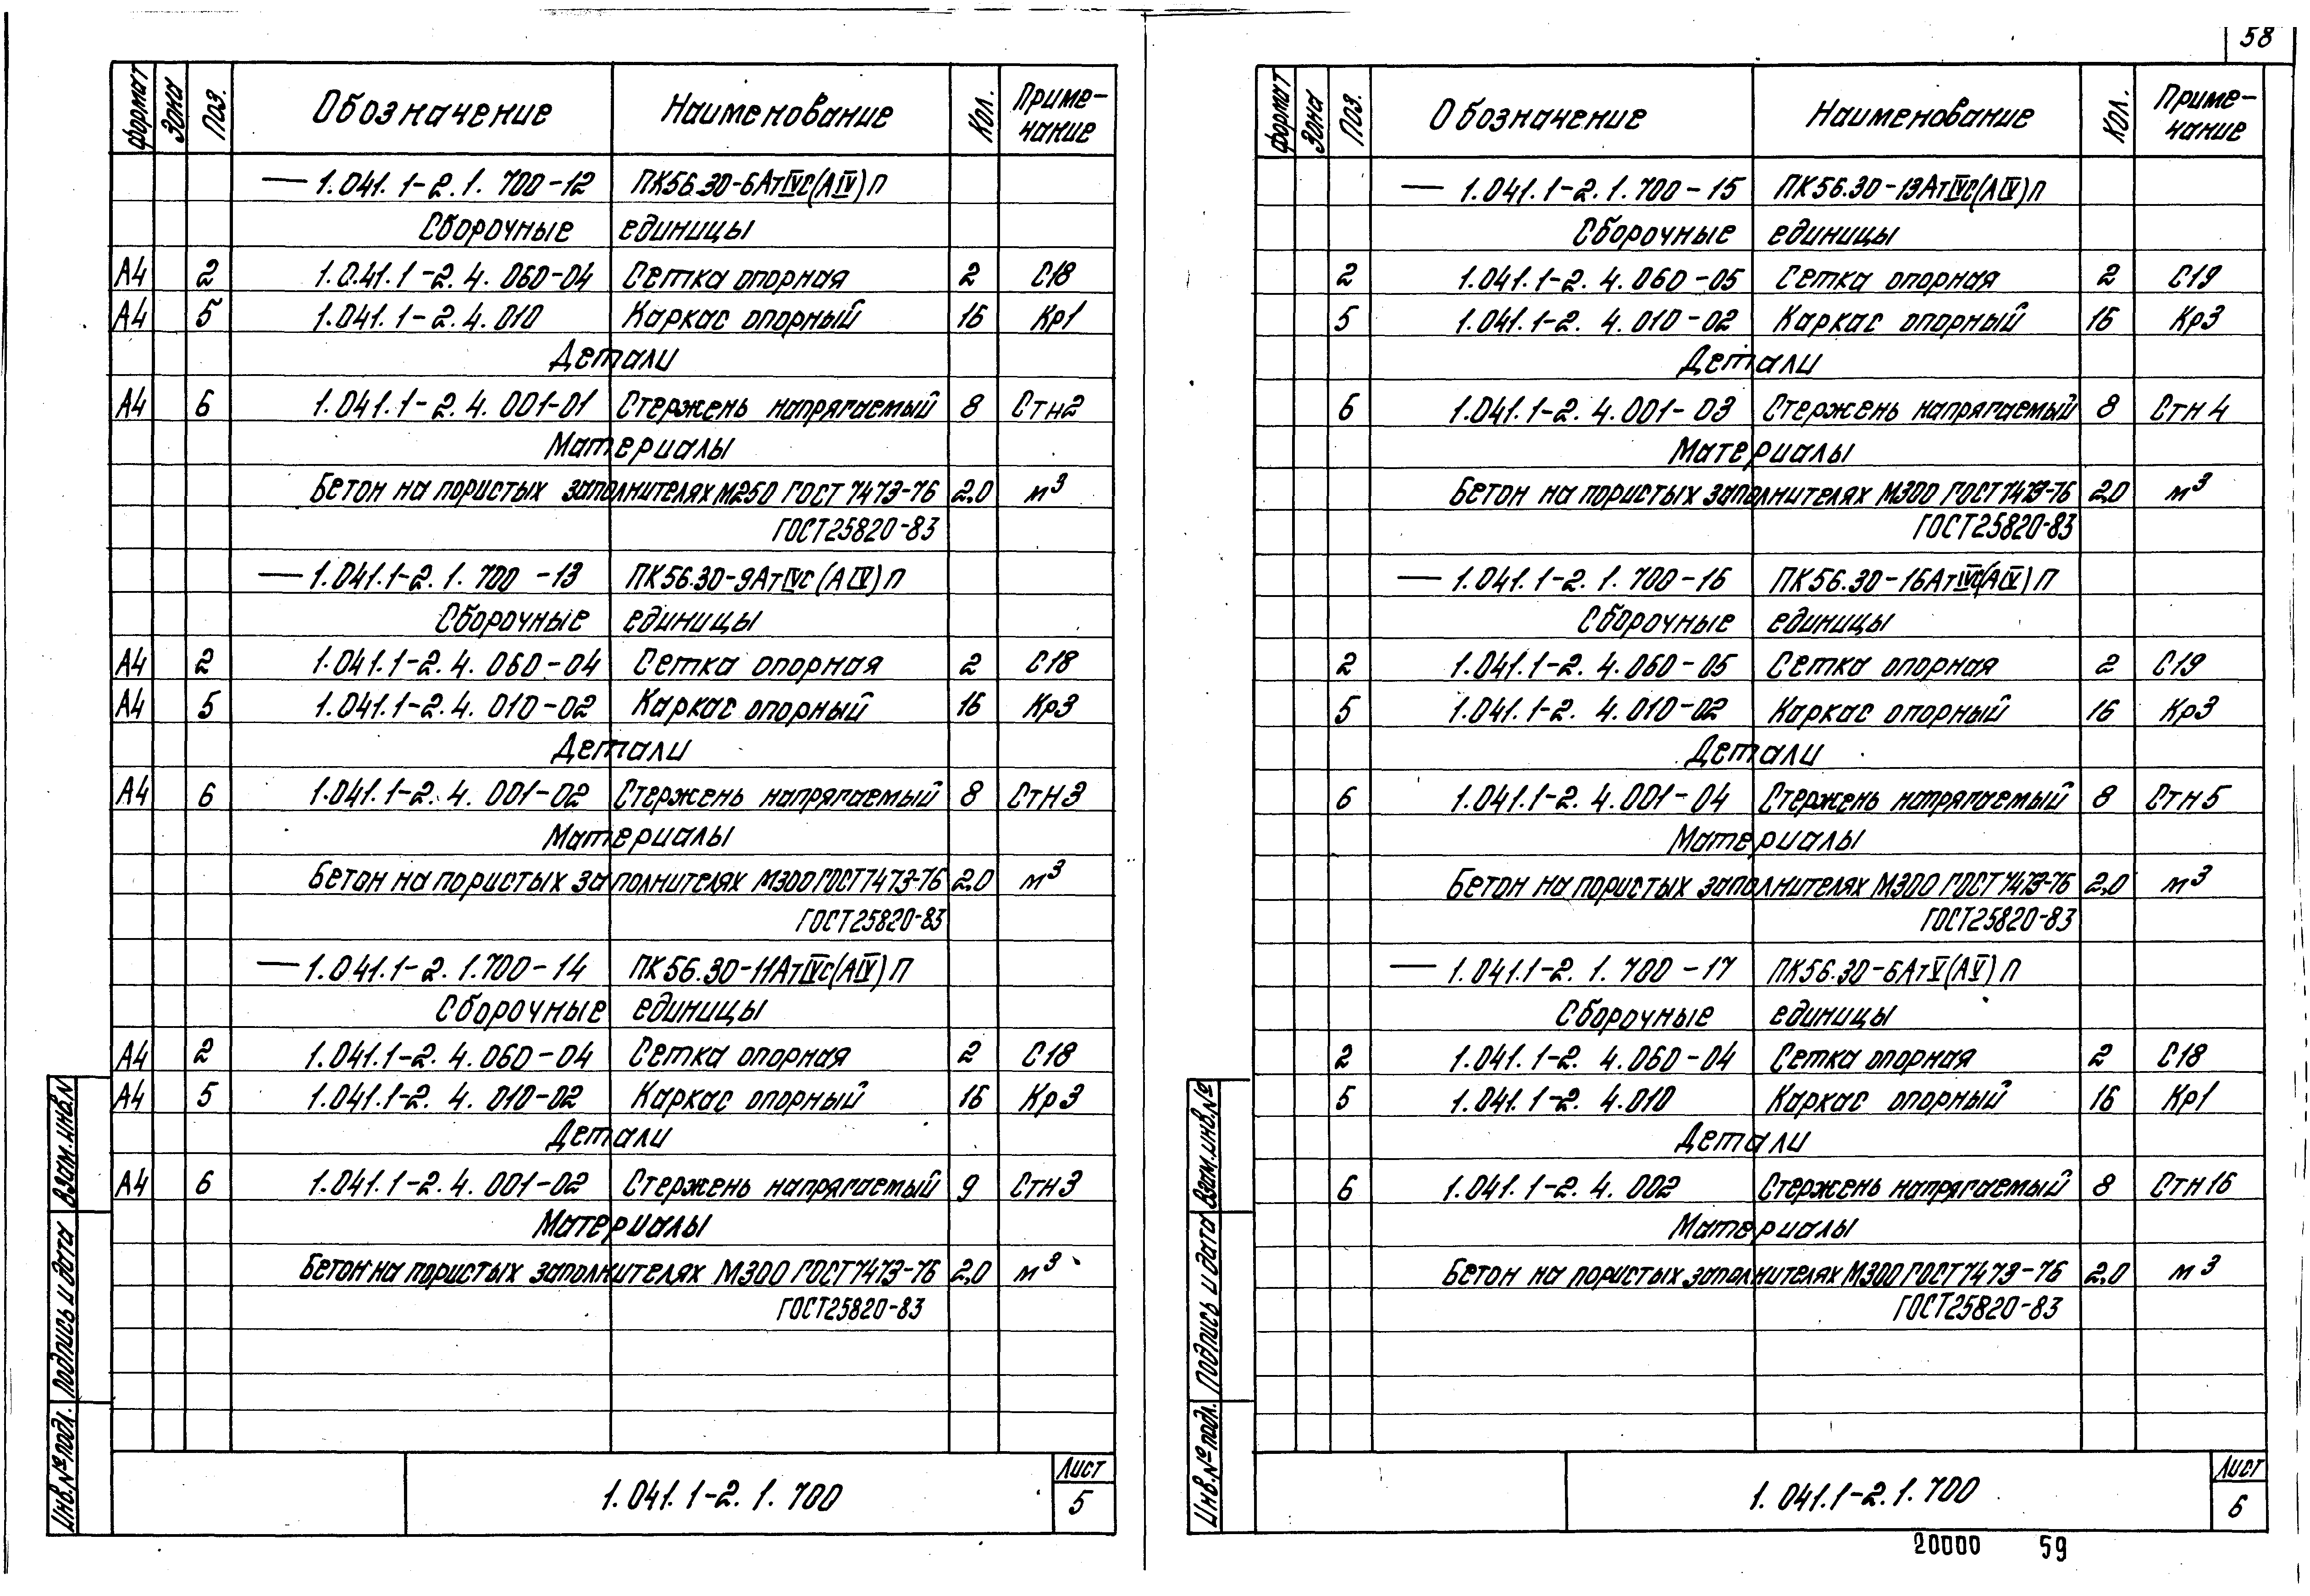 58
формат Зона Поз. Обозначение Наименование Кол. Приме-
чание
— 1.041.1-2.1.700-12 ПК56.30-6АтIVС(АIV)П
Сборочные единицы
А4 2 1.041.1-2.4.060-04 Сетка опорная 2 С18
А4 5 1.041.1-2.4.010 Каркас опорный 16 Кр1
Детали
А4 6 1.041.1-2.4.001-01 Стержень напрягаемый 8 Стн2
Материалы
Бетон на пористых заполнителях М250 ГОСТ 7473-76 2,0 м³
ГОСТ25820-83
— 1.041.1-2.1.700-13 ПК56.30-9АтIVС(АIV)П
Сборочные единицы
А4 2 1.041.1-2.4.060-04 Сетка опорная 2 С18
А4 5 1.041.1-2.4.010-02 Каркас опорный 16 Кр3
Детали
А4 6 1.041.1-2.4.001-02 Стержень напрягаемый 8 Стн3
Материалы
Бетон на пористых заполнителях М300 ГОСТ7473-76 2,0 м³
ГОСТ25820-83
— 1.041.1-2.1.700-14 ПК56.30-11АтIVС(АIV)П
Сборочные единицы
А4 2 1.041.1-2.4.060-04 Сетка опорная 2 С18
А4 5 1.041.1-2.4.010-02 Каркас опорный 16 Кр3
Детали
А4 6 1.041.1-2.4.001-02 Стержень напрягаемый 9 Стн3
Материалы
Бетон на пористых заполнителях М300 ГОСТ7473-76 2,0 м³
ГОСТ25820-83
Инв.№подл. Подпись и дата Взам.инв.N
1.041.1-2.1.700
Лист
5
формат Зона Поз. Обозначение Наименование Кол. Приме-
чание
— 1.041.1-2.1.700-15 ПК56.30-13АтIVС(АIV)П
Сборочные единицы
2 1.041.1-2.4.060-05 Сетка опорная 2 С19
5 1.041.1-2.4.010-02 Каркас опорный 16 Кр3
Детали
6 1.041.1-2.4.001-03 Стержень напрягаемый 8 Стн4
Материалы
Бетон на пористых заполнителях М300 ГОСТ7473-76 2,0 м³
ГОСТ25820-83
— 1.041.1-2.1.700-16 ПК56.30-16АтIVС(АIV)П
Сборочные единицы
2 1.041.1-2.4.060-05 Сетка опорная 2 С19
5 1.041.1-2.4.010-02 Каркас опорный 16 Кр3
Детали
6 1.041.1-2.4.001-04 Стержень напрягаемый 8 Стн5
Материалы
Бетон на пористых заполнителях М300 ГОСТ7473-76 2,0 м³
ГОСТ25820-83
— 1.041.1-2.1.700-17 ПК56.30-6АтV(АV)П
Сборочные единицы
2 1.041.1-2.4.060-04 Сетка опорная 2 С18
5 1.041.1-2.4.010 Каркас опорный 16 Кр1
Детали
6 1.041.1-2.4.002 Стержень напрягаемый 8 Стн16
Материалы
Бетон на пористых заполнителях М300 ГОСТ7473-76 2,0 м³
ГОСТ25820-83
Инв.№подл. Подпись и дата Взам.инв.№
1.041.1-2.1.700
Лист
6
20000 59